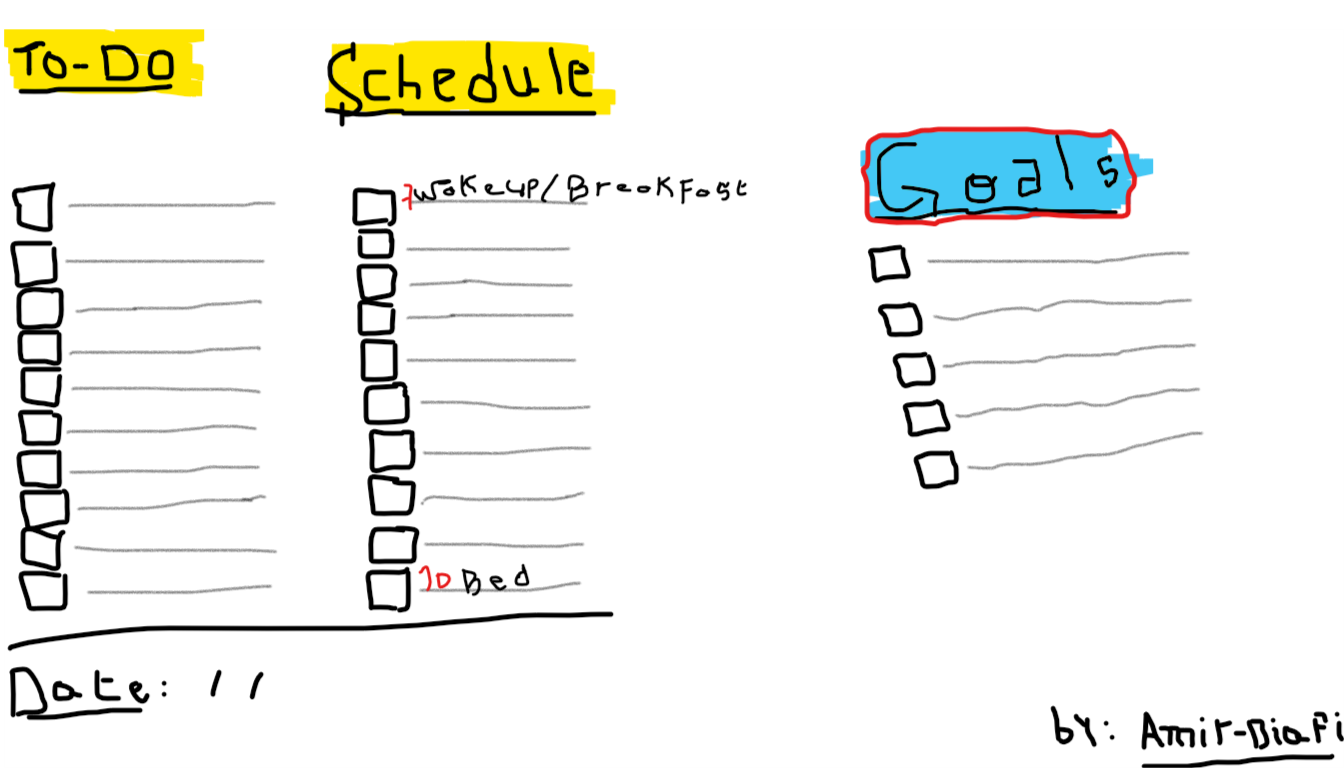 To-Do
Schedule
Goals
7 wakeup/Breakfast
10 Bed
Date: / /
by: Amir-Diafi